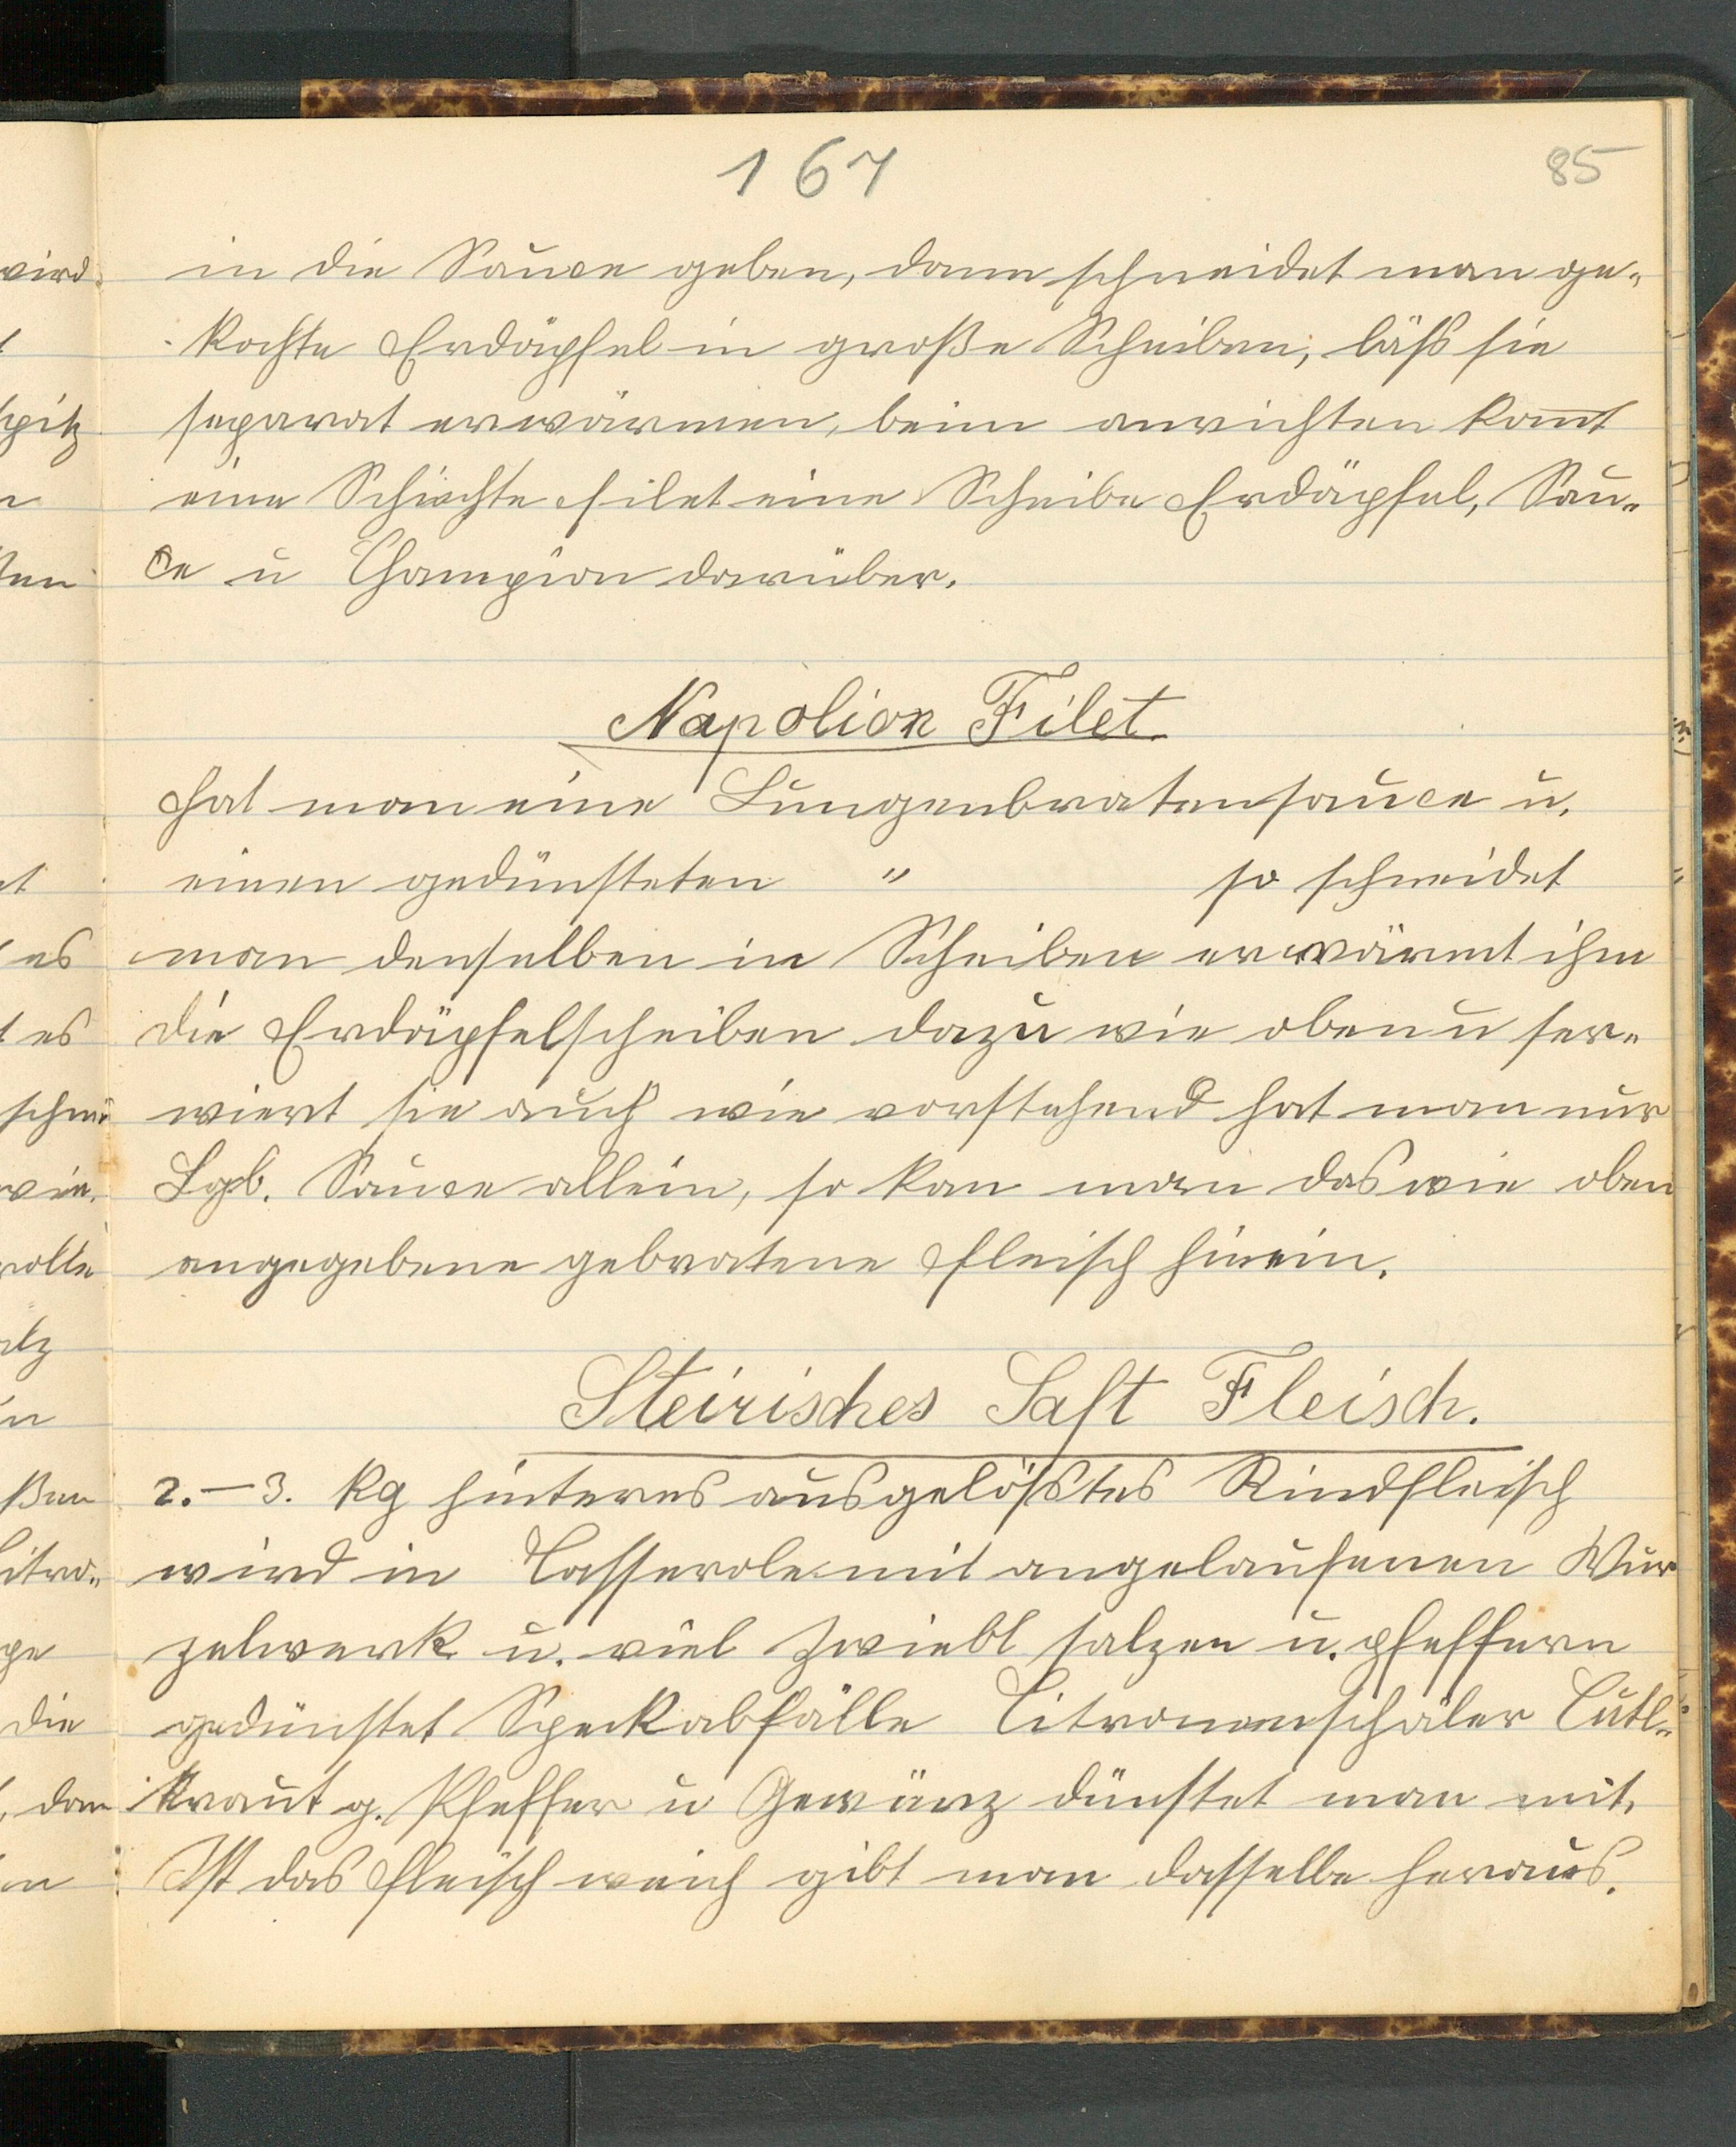 167
85
in die Sauce geben, dann schneidet man ge-
kochte Erdäpfel in große Scheiben, läßt sie
separat erwärmen, beim anrichten komt
eine Schichte Filet eine Scheibe Erdäpfel, Sau-
ce u Champion darüber.
Napolion Filet
Hat man eine Lungenbratensauce u.
einen gedünsteten " so schneidet
man denselben in Scheiben erwärmt ihm
die Erdäpfelscheiben dazu wie oben u ser-
wiert sie auch wie vorstehend hat man nur
Lgb. Sauce allein, so kan man das wie oben
angegebene gebratene Fleisch hinein.
Steirisches Saft Fleisch.
2.-3. kg hinteres ausgelößtes Rindfleisch
wird in Casserole mit angelaufenen Wur
zelwerk u. viel Zwiebl salzen u. pfeffern
gedünstet Speckabfälle Citronenschäler Cutl-
kraut g. Pfeffer u Gewürz dünstet man mit.
Ist das Fleisch weich gibt man dasselbe heraus.